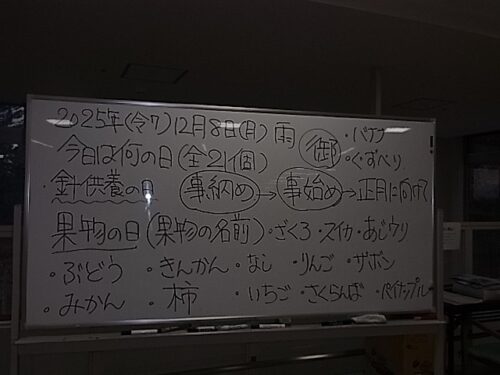 2025年(令7)12月8日(月) 雨
今日は何の日(全21個) 御 ・バナナ
・ぐずべり
・針供養の日 事納め→事始め→正月に向けて
果物の日(果物の名前)・ざくろ・スイカ・あじウリ
・ぶどう ・きんかん ・なし ・りんご ・ザボン
・みかん ・柿 ・いちご ・さくらんぼ ・パイナップル